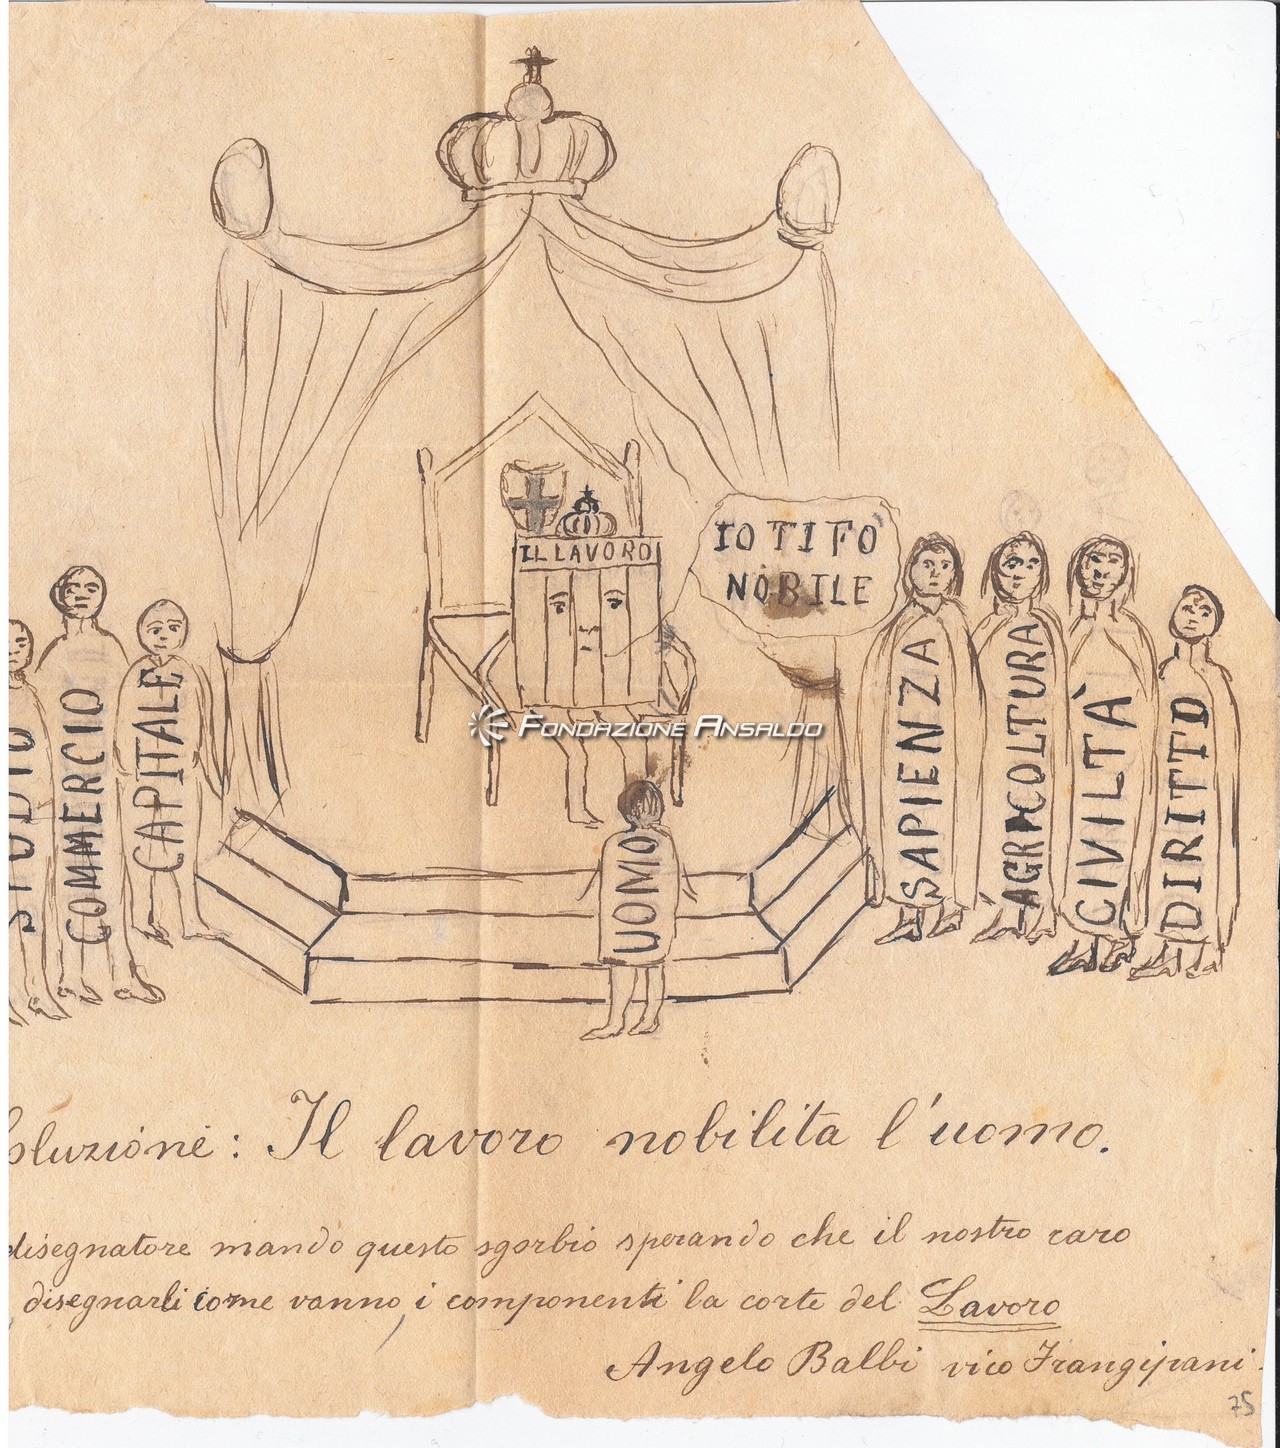 IL LAVORO
IO TI FÒ
NOBILE
COMMERCIO
CAPITALE
SAPIENZA
AGRICOLTURA
CIVILTÀ
DIRITTO
UOMO
FONDAZIONE ANSALDO
oluzione: Il lavoro nobilita l'uomo.
disegnatore mando questo sgorbio sperando che il nostro caro
disegnarli come vanno, i componenti la corte del Lavoro
Angelo Balbi vico Frangipani.
75